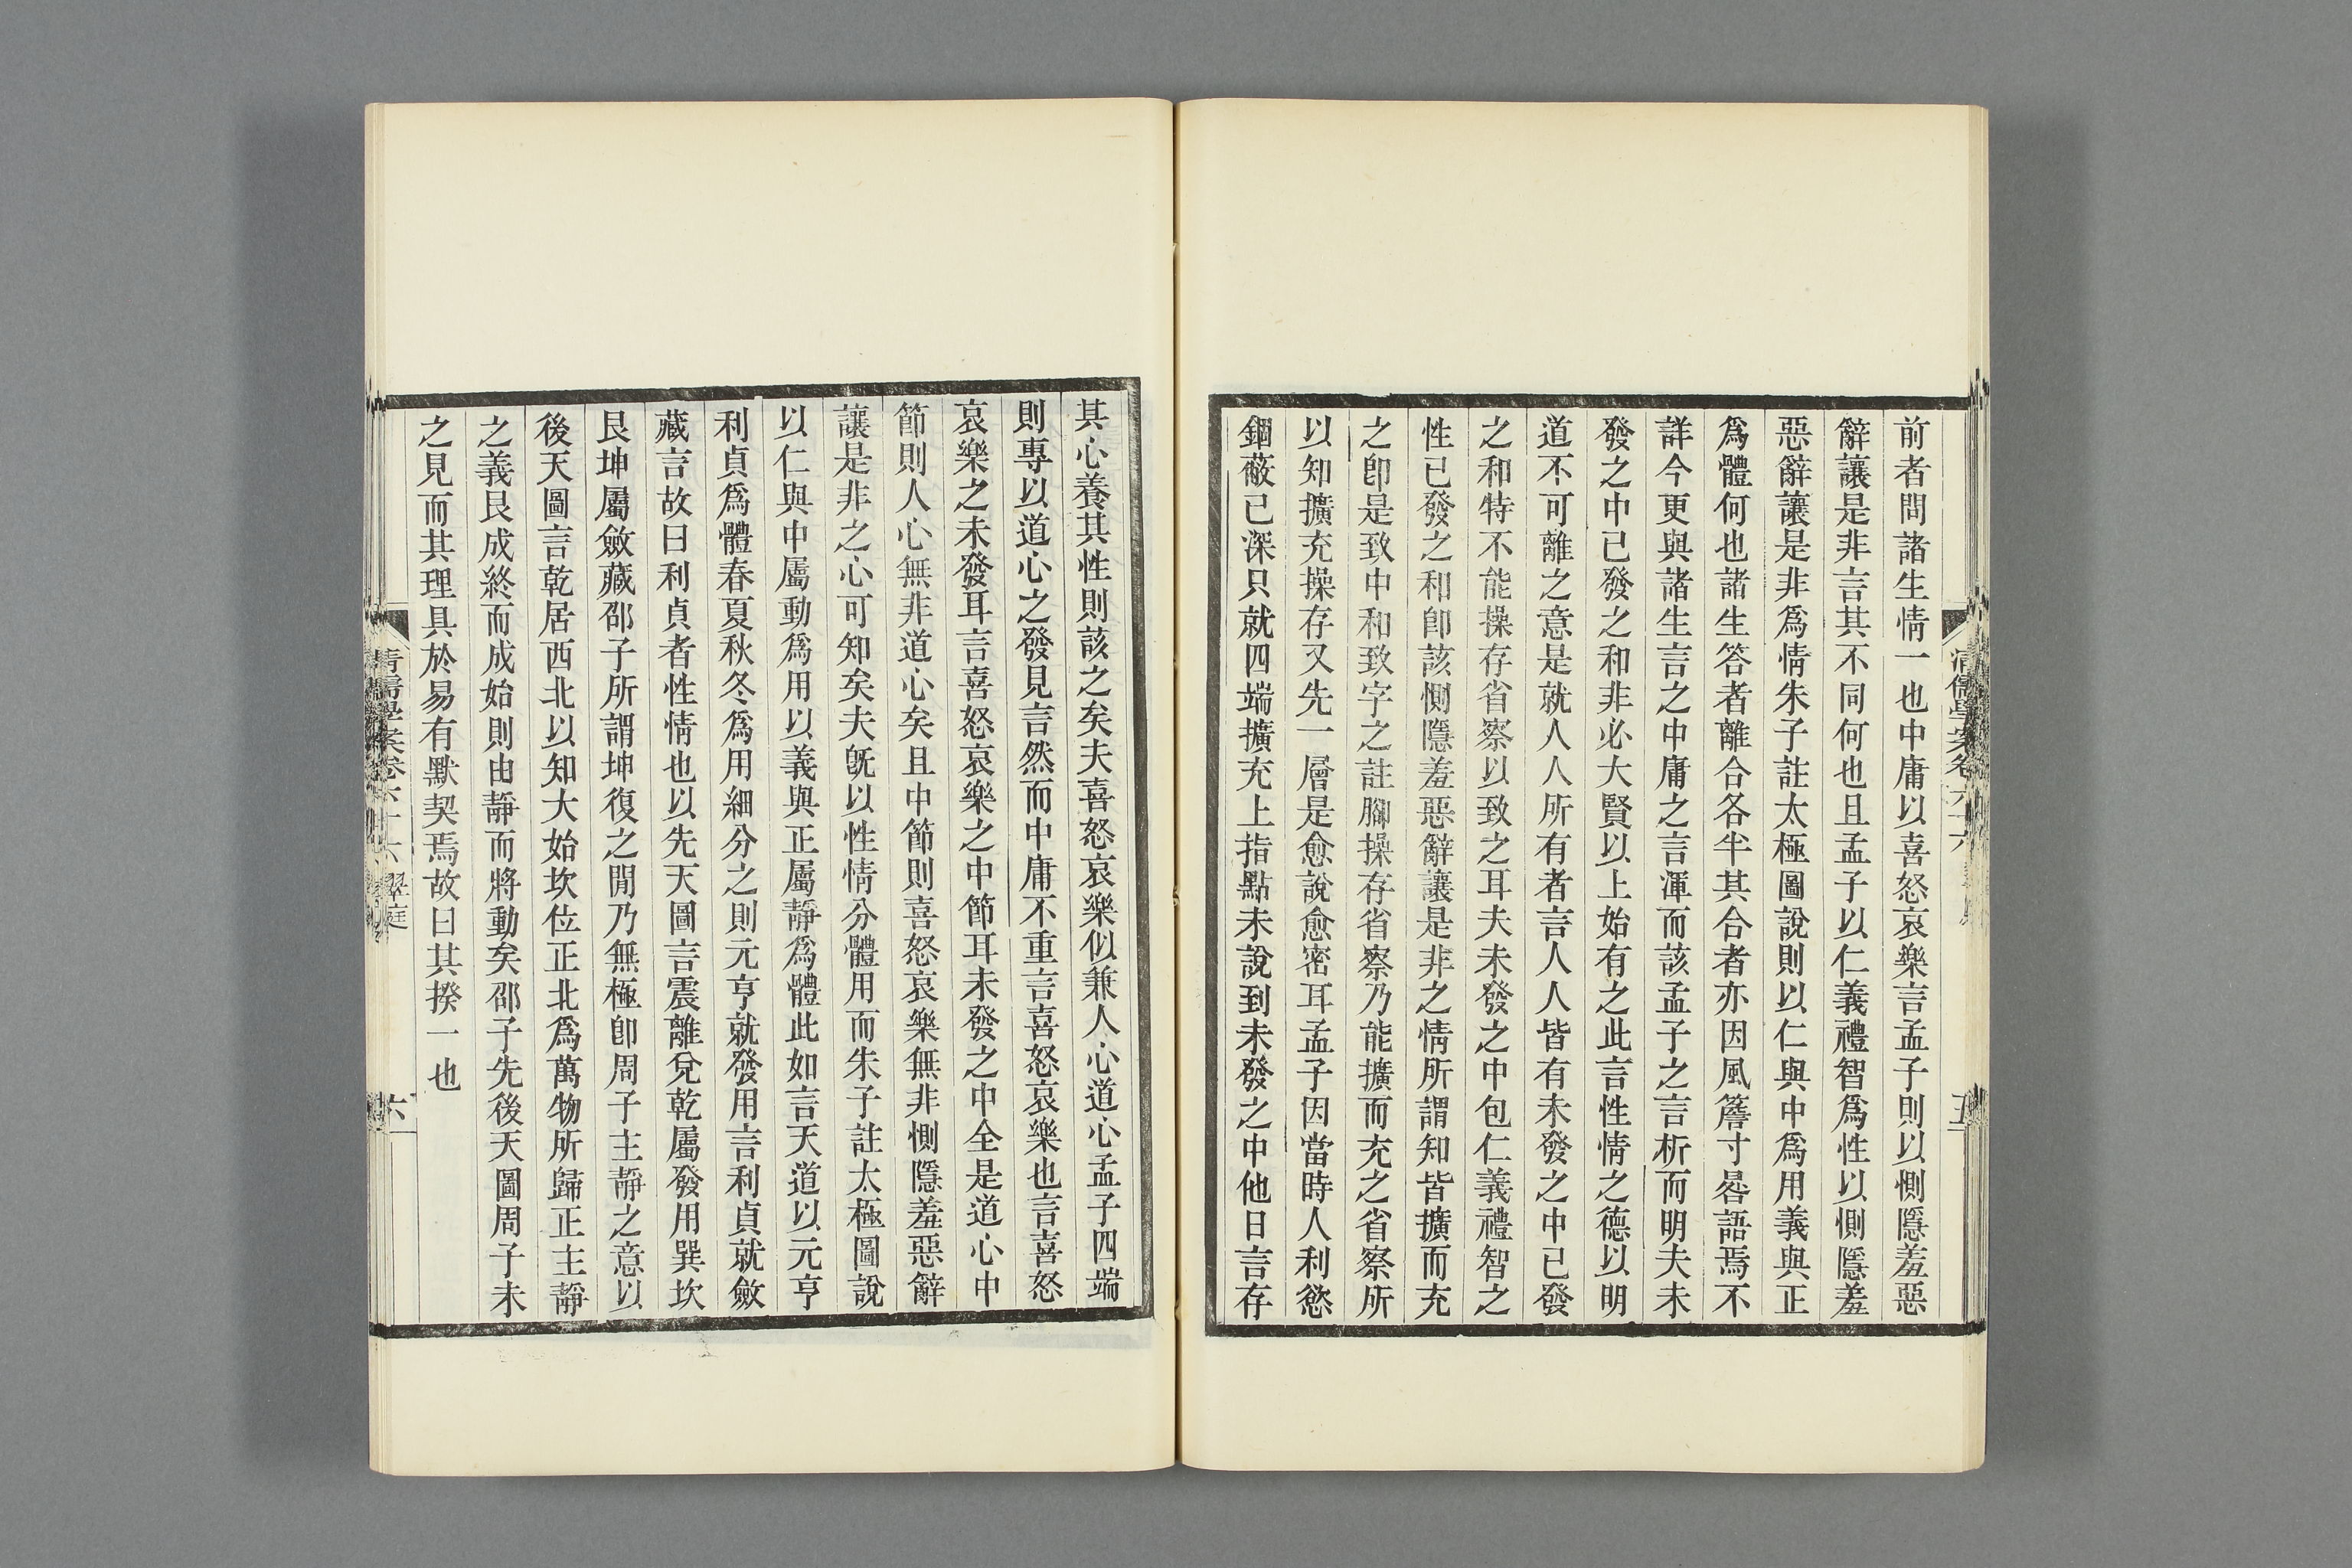 前者問諸生情一也中庸以喜怒哀樂言孟子則以惻隱羞惡
辭讓是非言其不同何也且孟子以仁義禮智爲性以惻隱羞
惡辭讓是非爲情朱子註太極圖說則以仁與中爲用義與正
爲體何也諸生答者離合各半其合者亦因風簷寸晷語焉不
詳今更與諸生言之中庸之言渾而該孟子之言析而明夫未
發之中已發之和非必大賢以上始有之此言性情之德以明
道不可離之意是就人人所有者言人人皆有未發之中已發
之和特不能操存省察以致之耳夫未發之中包仁義禮智之
性已發之和卽該惻隱羞惡辭讓是非之情所謂知皆擴而充
之卽是致中和致字之註腳操存省察乃能擴而充之省察所
以知擴充操存又先一層是愈說愈密耳孟子因當時人利慾
錮蔽已深只就四端擴充上指點未說到未發之中他日言存
其心養其性則該之矣夫喜怒哀樂似兼人心道心孟子四端
則專以道心之發見言然而中庸不重言喜怒哀樂也言喜怒
哀樂之未發耳言喜怒哀樂之中節耳未發之中全是道心中
節則人心無非道心矣且中節則喜怒哀樂無非惻隱羞惡辭
讓是非之心可知矣夫旣以性情分體用而朱子註太極圖說
以仁與中屬動爲用以義與正屬靜爲體此如言天道以元亨
利貞爲體春夏秋冬爲用細分之則元亨就發用言利貞就斂
藏言故曰利貞者性情也以先天圖言震離兌乾屬發用巽坎
艮坤屬斂藏邵子所謂坤復之閒乃無極卽周子主靜之意以
後天圖言乾居西北以知大始坎位正北爲萬物所歸正主靜
之義艮成終而成始則由靜而將動矣邵子先後天圖周子未
之見而其理具於易有默契焉故曰其揆一也
清儒學案卷六十六 翠庭
六